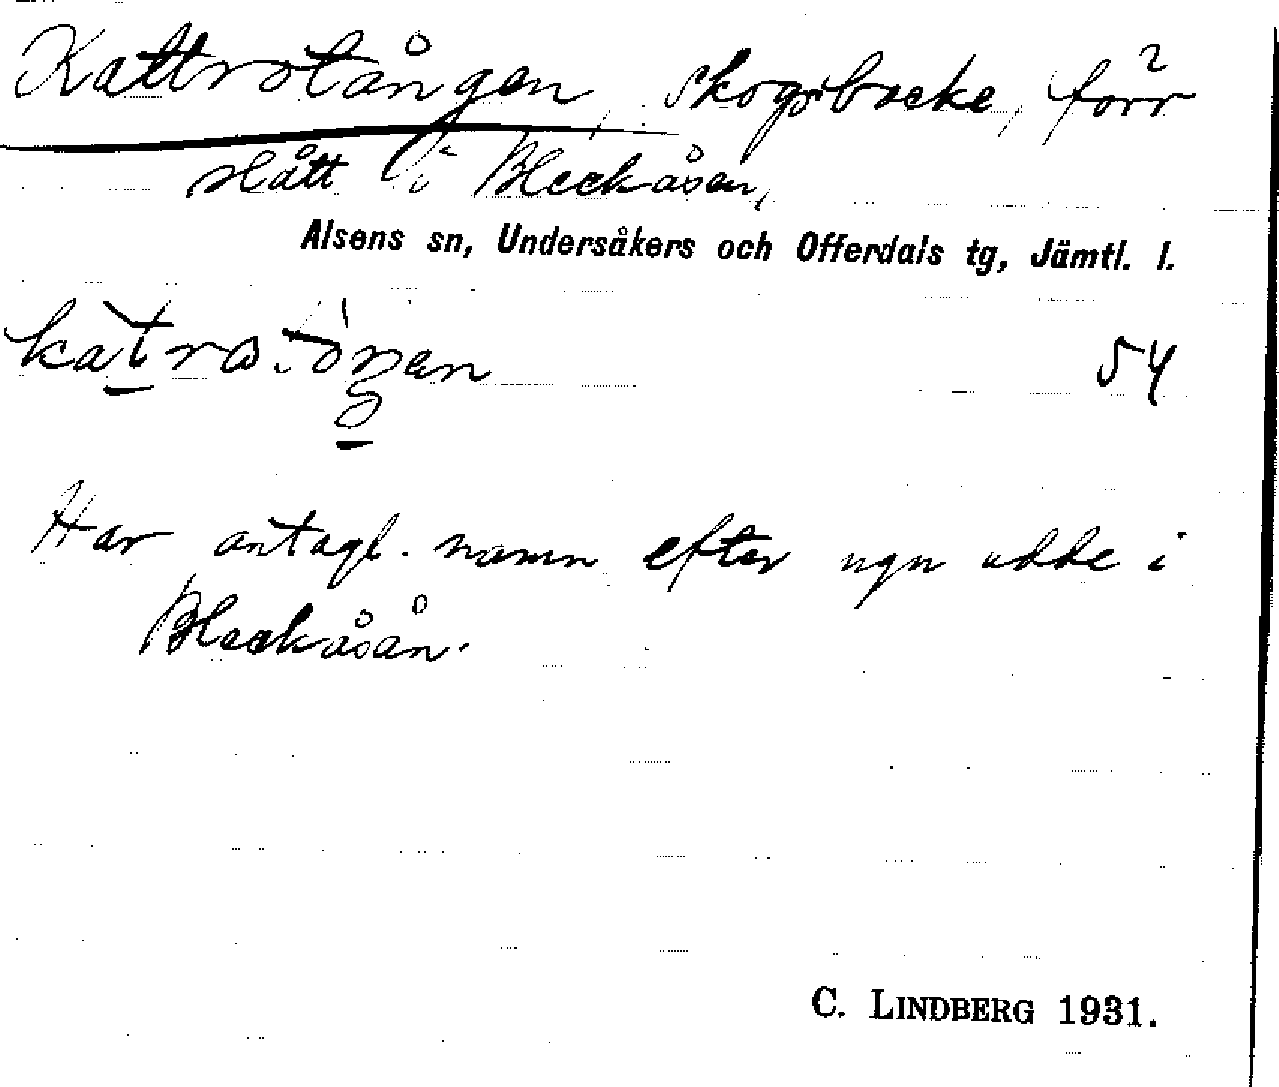 Kattrotången, skogsbacke, förr
slått i Bleckåsen,
Alsens sn, Undersåkers och Offerdals tg, Jämtl. l.
54
Har antagl. namn efter ngn udde i
Bleckåsån.
C. LINDBERG 1931.